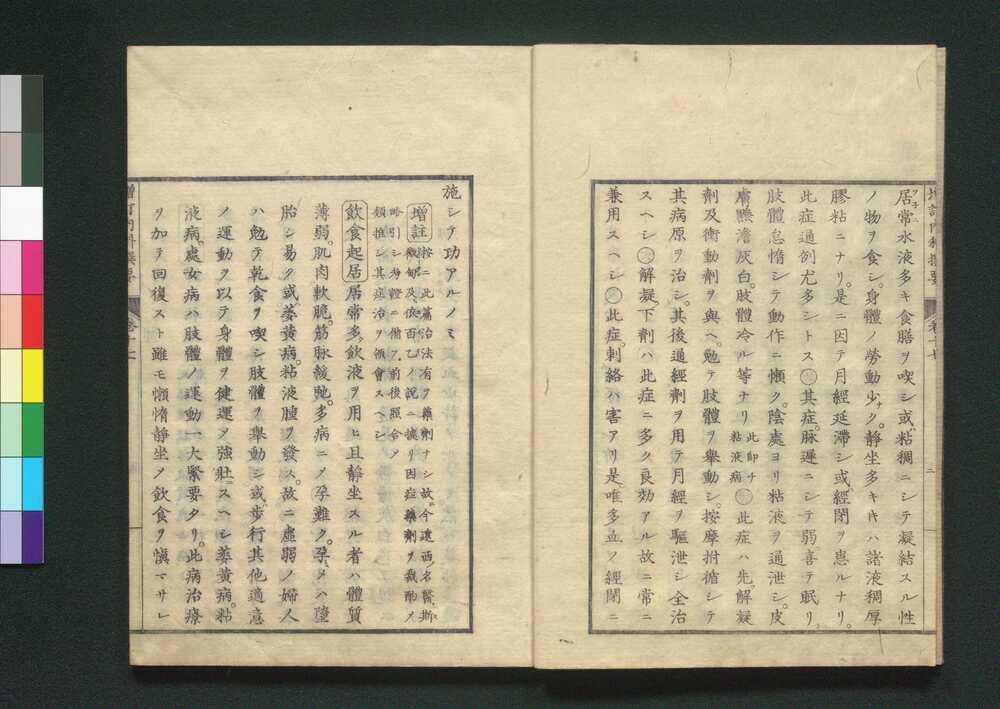 居常水液多キ食膳ヲ喫シ或ハ粘稠ニシテ凝結スル性
ノ物ヲ食シ。身體ノ勞動少ク。靜坐多キキハ諸液稠厚
膠粘ニナリ。是ニ因テ月經延滯シ或經閉ヲ患ルナリ。
此症過剖尤多シトス○其症。脉遲ニシテ弱。喜テ眠リ。
肢體怠惰シテ動作ニ懶ク。陰處ヨリ粘液ヲ通泄シ。皮
膚曕澹灰白。肢體冷ル等ナリ此即チ粘液病○此症ハ先。解凝
劑及衝動劑ヲ與ヘ。勉テ肢體ヲ舉動シ。按摩拊循シテ
其病原ヲ治シ。其後通經劑ヲ用テ月經ヲ驅泄シ全治
スヘシ○解凝。下劑ハ此症ニ多ク良効アル故ニ常ニ
兼用スヘシ○此症。刺絡ハ害アリ是。唯多血ノ經閉ニ
施シテ功アルノミ
增註 按ニ此篇治法有テ藥劑ナシ故ニ今遠西ノ名醫斯
微甸及依百乙ノ說ニ據リ因症藥劑ヲ裁酌メ
略引シ为證ニ備フ前後照合シ
類推シ其症治ヲ領會スヘシ
飲食起居 居常多飲液ヲ用ヒ且靜坐スル者ハ體質
薄弱。肌肉軟脆。筋脉緩弛。多病ニメ孕難ク。孕メハ墮
胎シ易ク或萎黄病。粘液腫ヲ發ス。故ニ虛弱ノ婦人
ハ勉テ乾食ヲ喫シ肢體ヲ舉動シ。或步行其他適意
ノ運動ヲ以テ身體ヲ健運メ強壯ニスヘシ萎黄病。粘
液病。處女病ハ肢體ノ運動一大緊要タリ。此病治療
ヲ加ヲ回復スト雖モ懶惰靜坐メ飲食ヲ愼マサレ